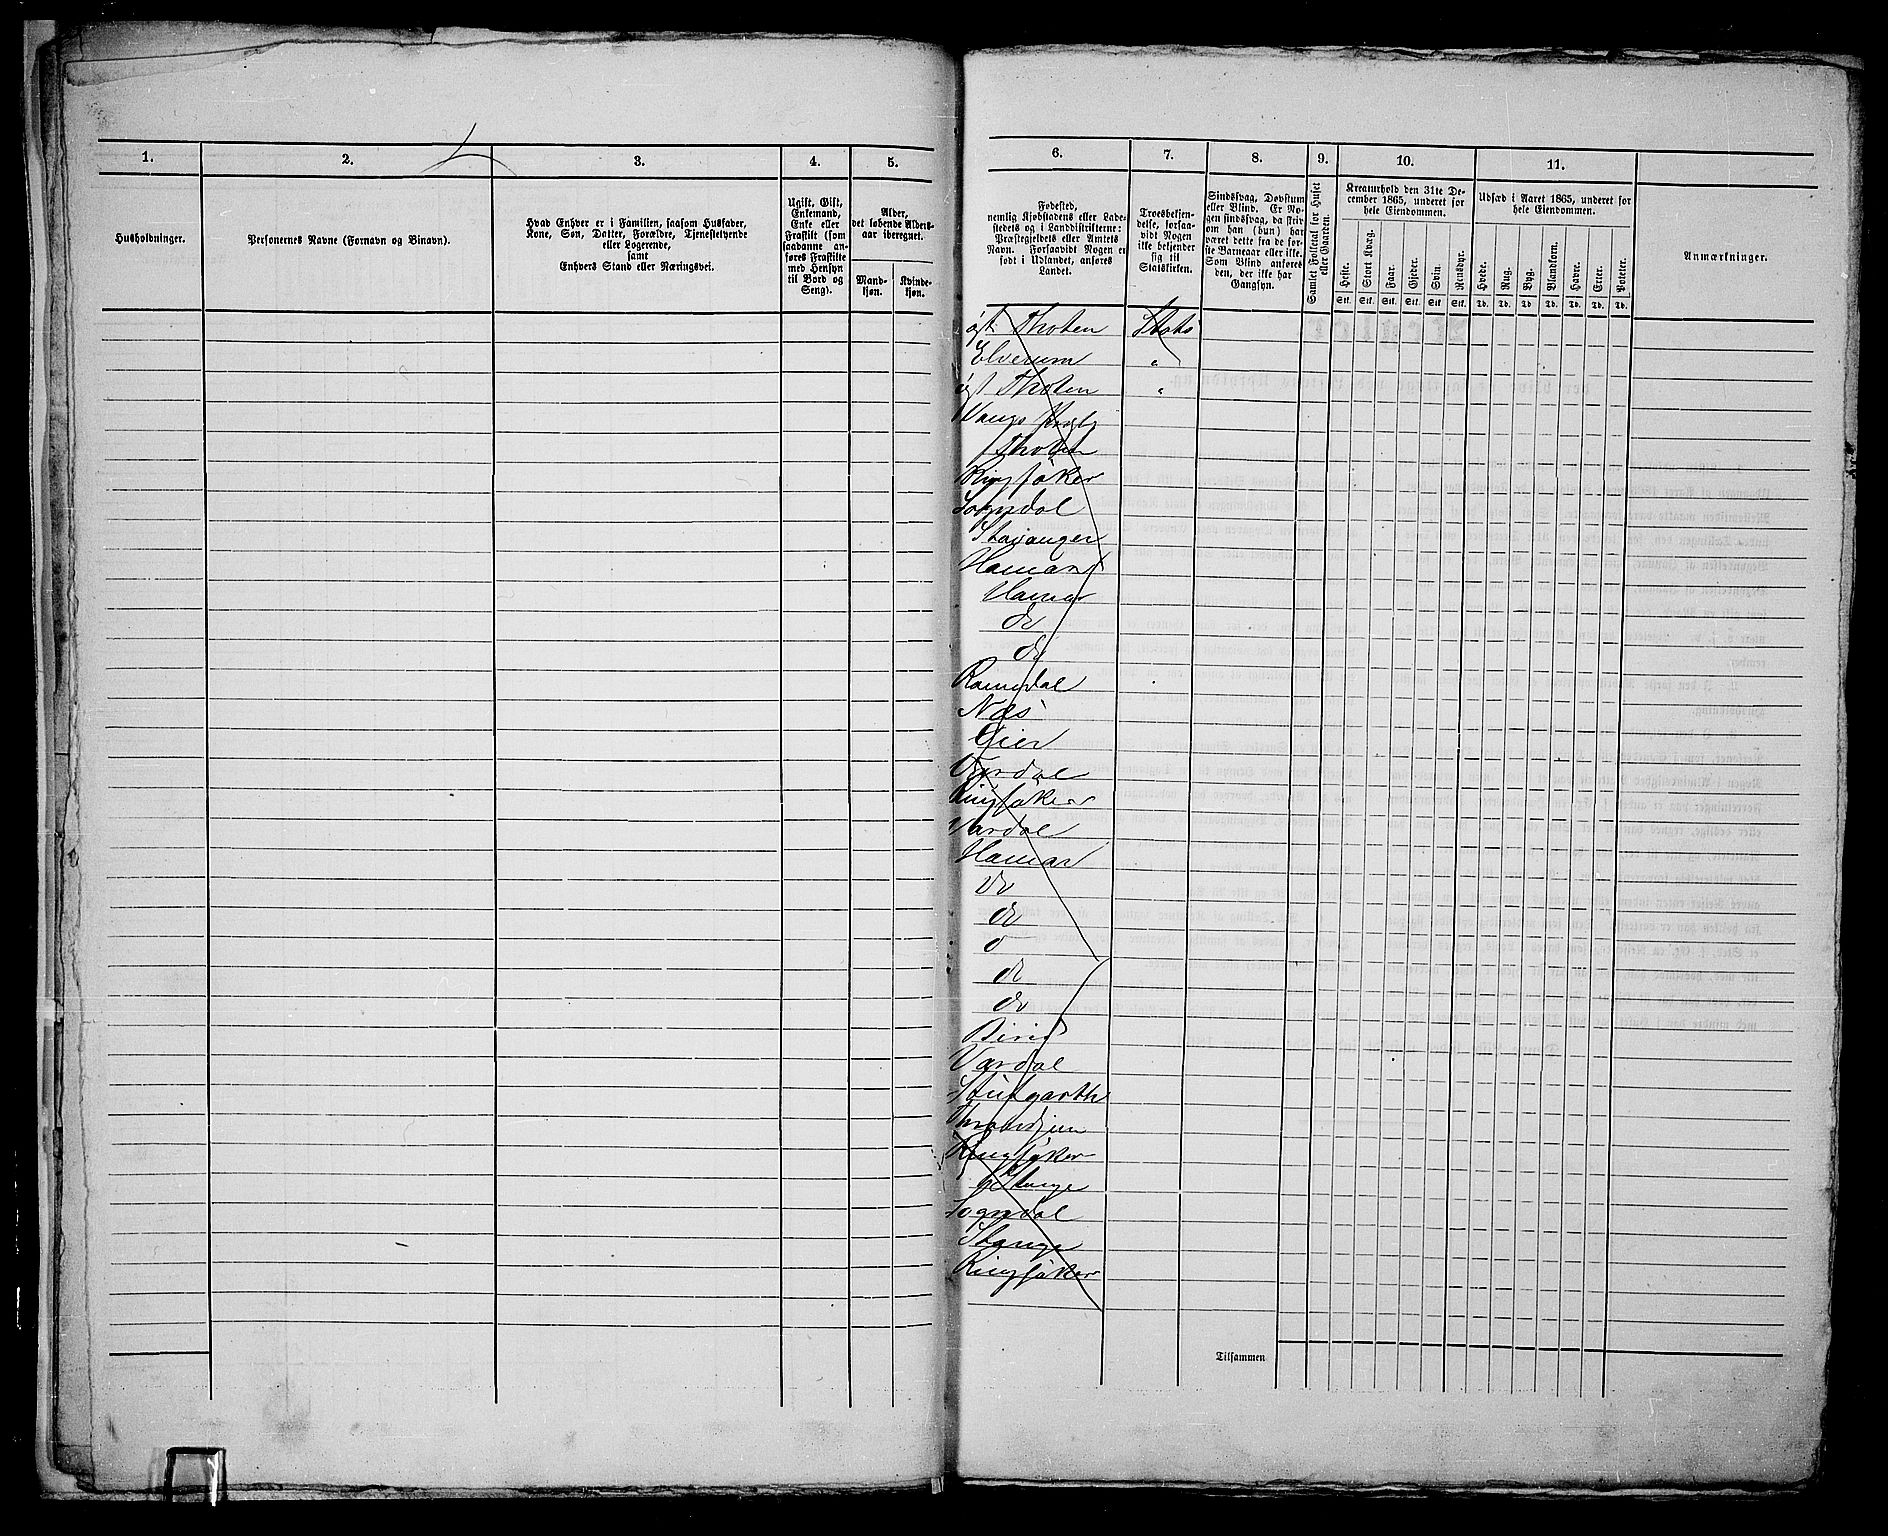 1.
2.
3.
4.
5.
Husholdninger.
Personernes Navne (Fornavn og Binavn).
Hvad Enhver er i Familien, saasom Husfader,
Kone, Søn, Datter, Forældre, Tjenestetyende
eller Logerende,
samt
Enhvers Stand eller Næringsvei.
Ugift, Gift,
Enkemand,
Enke eller
Fraskilt (som
saadanne an-
føres Fraskilte
med Hensyn
til Bord og
Seng).
Alder,
det løbende Alders-
aar iberegnet.
Mand-
kjøn.
Kvinde-
kjøn.
6.
7.
8.
9.
10.
11.
Fødested,
nemlig Kjøbstadens eller Lade-
stedets og i Landdistrikterne:
Præstegjeldets eller Amtets
Navn. Forsaavidt Nogen er
født i Udlandet, anføres
Landet.
Troesbekjen-
delse, forsaa-
vidt Nogen
ikke bekjender
sig til
Statskirken.
Sindssvag, Døvstum
eller Blind. Er No-
gen sindssvag, da skriv
om han (hun) har
været dette fra de for-
ste Barneaar eller ikke.
Som Blind anføres
den, der ikke har
Gangsyn.
Samlet Folketal for Huset
eller Gaarden.
Kreaturhold den 31te De-
cember 1865, underet for
hele Eiendommen.
Heste.
Stort Kvæg.
Faar.
Gjeder.
Svin.
Rensdyr.
Stk.
Stk.
Stk.
Stk.
Stk
Stk.
Udsæd i Aaret 1865, underet for
hele Eiendommen.
Hvede.
Rug.
Byg.
Blandkorn.
Havre.
Erter.
Poteter.
Td.
Td.
Td
Td.
Td.
Td.
Td.
Anmærkninger.
øst Thoten Stats
Elverum "
øst Thoten "
Vangs
Thoten
Ringsaker
Sogndal
Stavanger
Hamar
Hamar
do
do
Romsdal
Næs
Eier
Vardal
Ringsaker
Vardal
Hamar
do
do
do
do
Birid
Vardal
Stutgarth
Throndjem
Ringsaker
Stange
Sogndal
Stange
Ringsaker
Tilsammen